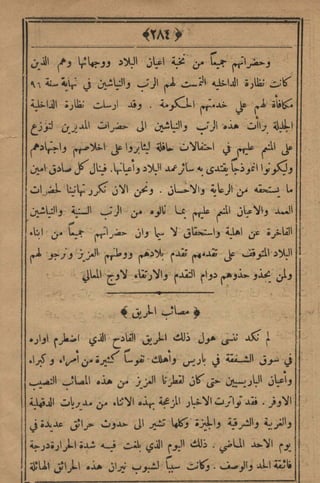 ﴿ ٢٨٤ ﴾
وحضراتهم جميعًا من نخبة اعيان البلاد ووجهائها وهم الذين
كانت نظارة الداخليه التمست لهم الرتب والنياشين في نهاية سنة ٩٦
مكافأة لهم على خدمتهم الحكومة . وقد ارسلت نظارة الداخلية
الجليلة براآت هذه الرتب والنياشين الى حضرات المديرين لتوزع
على المنعم عليهم في احتفالات حافلة ليثابروا على اخلاصهم واجتهادهم
وليكونوا انموذجًا يقتدى به سائر عمد البلاد وأعيانها . فينال كل صادق امين
ما يستحقه من الرعاية والاحسان . ونحن الان نكرر تهانينا لحضرات
العمد والاعيان المنعم عليهم بما نالوه من الرتب السنية والنياشين
الفاخرة عن اهلية واستحقاق لا سيما وان حضراتهم جميعًا من ابناء
البلاد المتوقف على تقدمهم تقدم بلادهم ووطنهم العزيز ونرجو لهم
ولمن يحذو حذوهم دوام التقدم والارتقاء لاوج المعالي
﴿ مصائب الحريق ﴾
لم نكد ننسى هول ذلك الحريق الفادح الذي اضطرم اواره
في سوق الشفقة في باريس وأهلك نفوسًا كثيرة من أمراء وكبراء
وأعيان الباريسيين حتى كان لقطرنا العزيز من هذه المصائب النصيب
الاوفر . فقد تواترت الاخبار المزعجة بهذه الاثناء من مديريات الدقهلية
والغربية والشرقية والجيزة وكلها تشير الى حدوث حرائق عديدة في
يوم الاحد الماضي . ذلك اليوم الذي بلغت فيه شدة الحرارة درجة
فائقة الحد والوصف . وكانت سببًا لشبوب نيران هذه الحرائق الهائلة